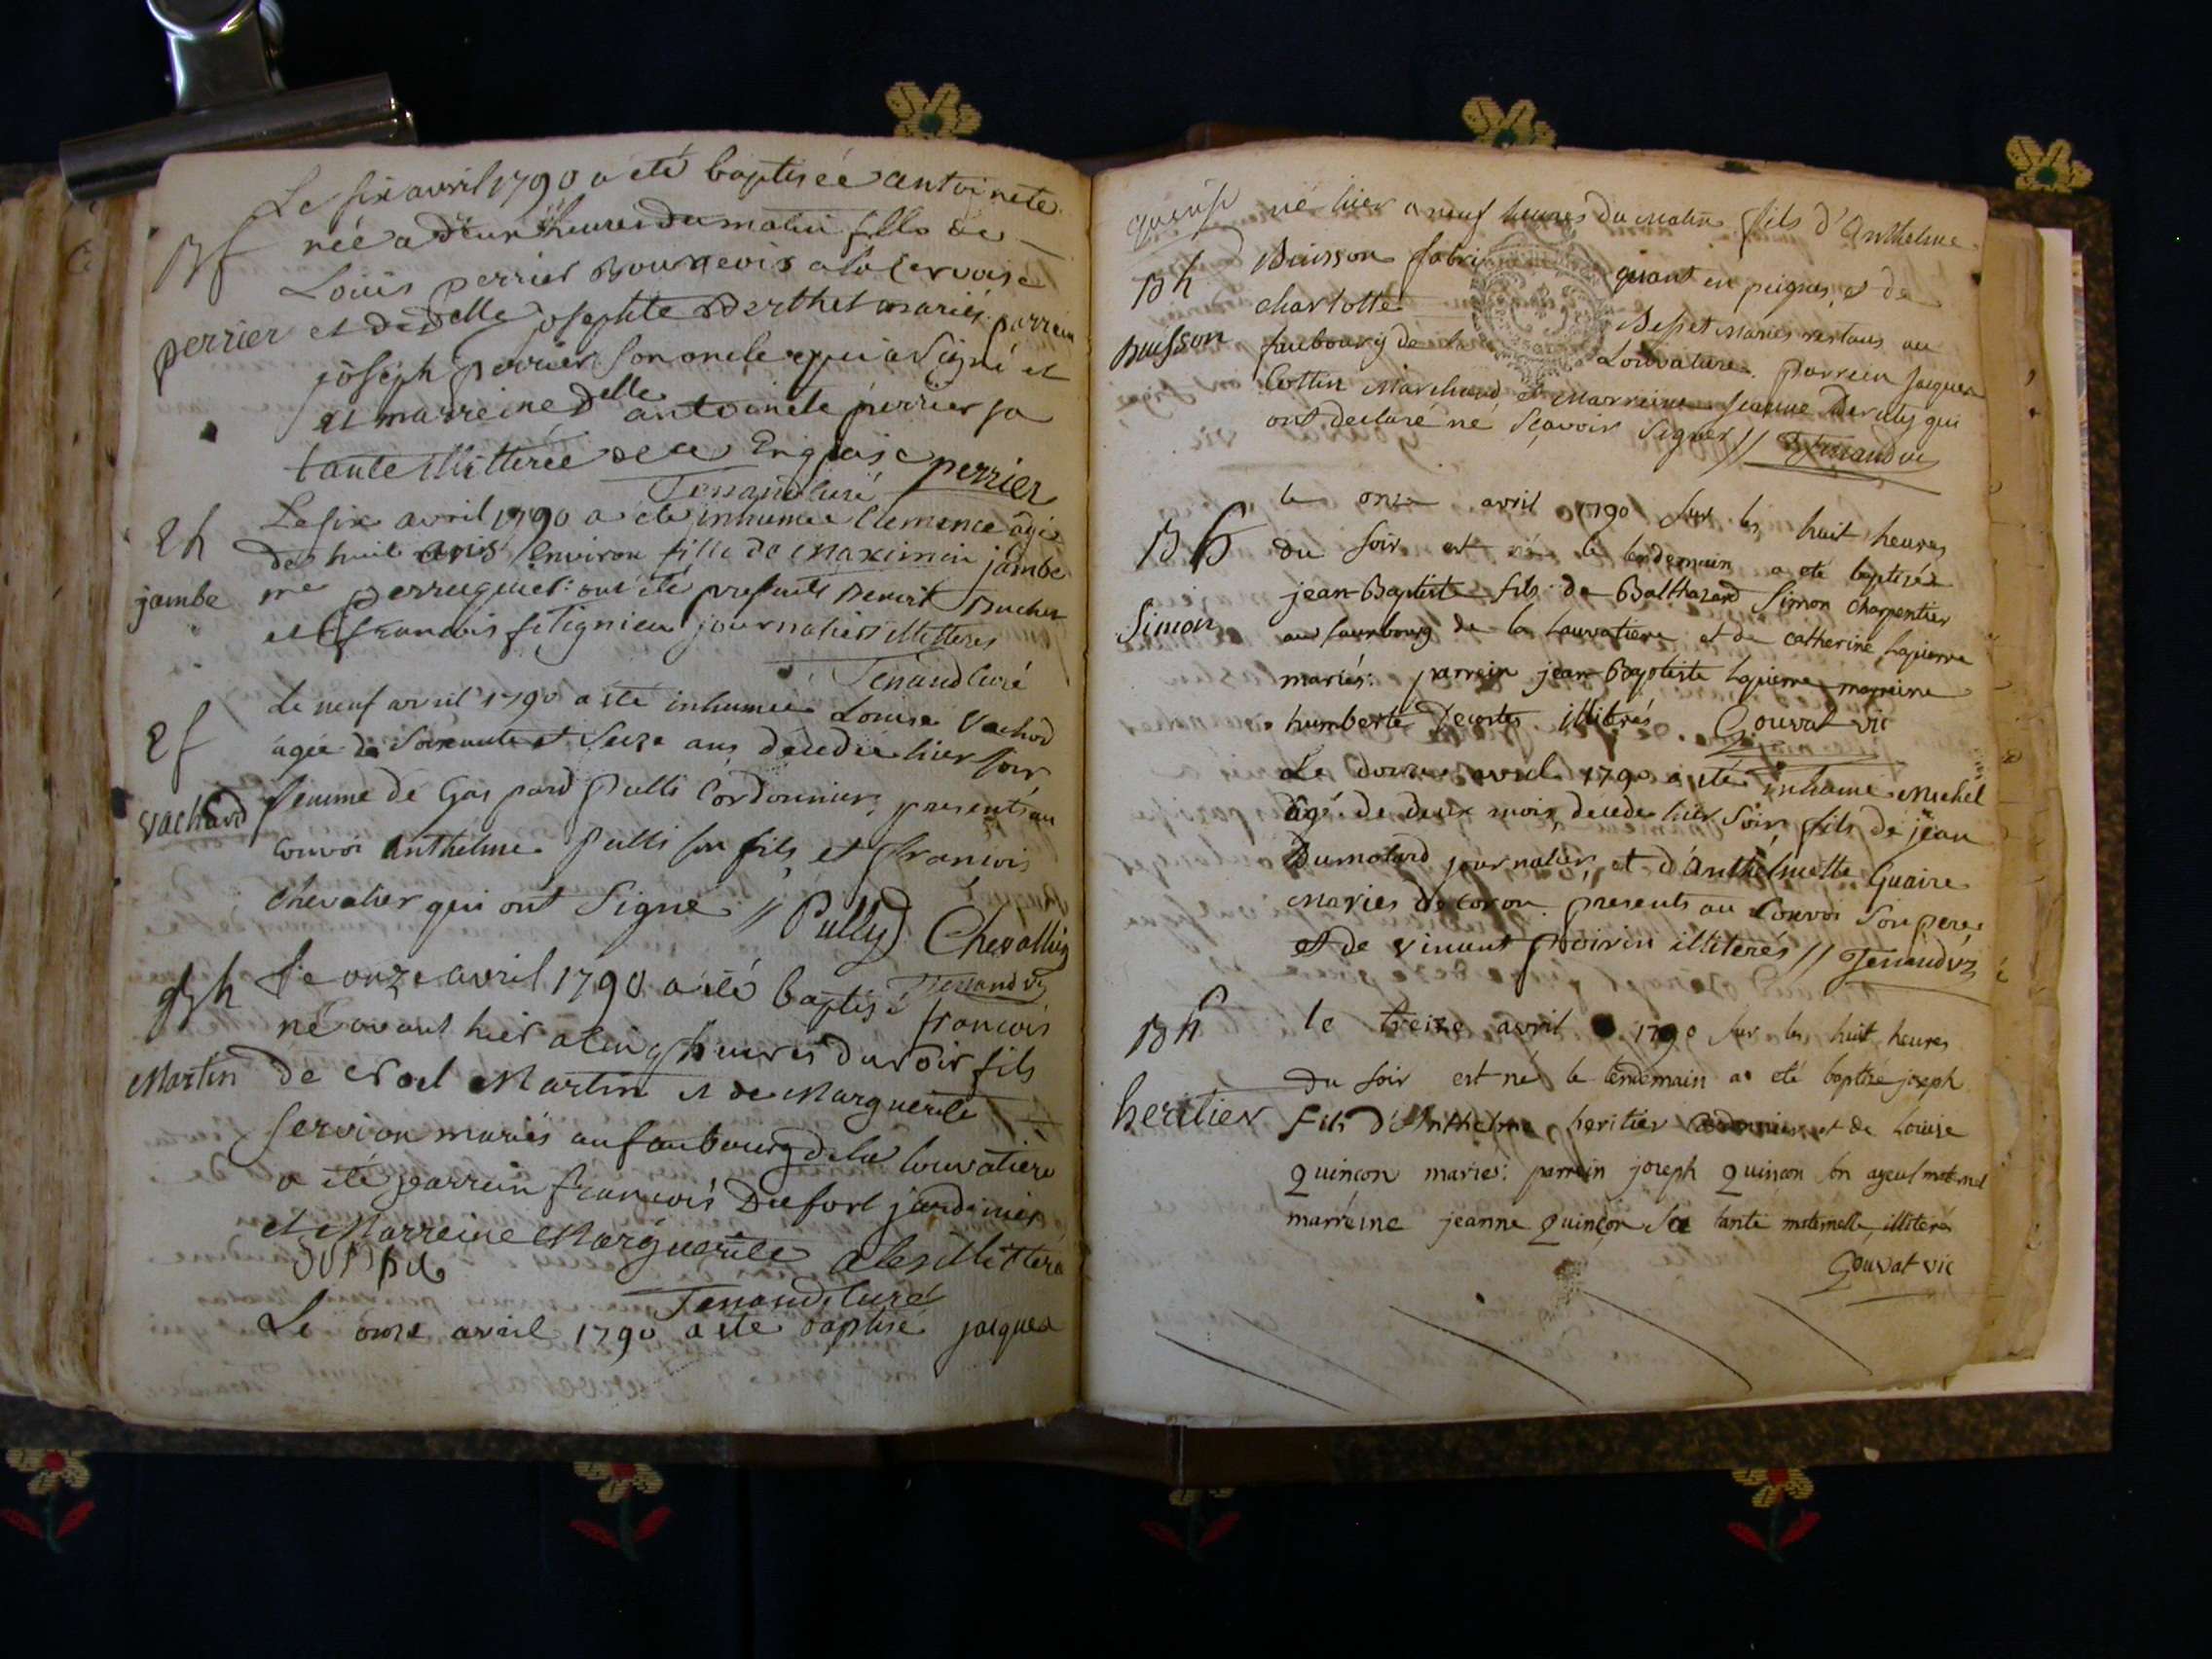 Le six avril 1790 a été baptiseé antoinete
Bf née a deux heures du matin fille de
Loüis perrier Bourgeois a la
perrier et de delle josephte Berthet mariés. parrein
joseph perrier son oncle qui a signé et
et marreine delle antoinete perrier sa
tante illitterée perrier
Tenand curé
Le six avril 1790 a été inhumée Clemence âgée
Sh de huit environ fille de Maximin jambe
jambe me perruquier: ont été presents Benoit Bucher
et francois journalier illitterés
Tenand Curé
Le neuf avril 1790 a été inhumée Louise Vachod
Sf âgée de Soixante et Seize ans decedée hier soir
Vachard femme de Gaspard Pulli Cordonnier, presents au
convoi Anthelme Pulli son fils et francois
Chevalier qui ont Signé // Pully Chevallier
Tenand
Le onze avril 1790 a été baptisé francois
Bh né avant hier a cinq heures du soir fils
Martin de Noel Martin et de Marguerite
Servion mariés au faubourg de la louvatiere
a été parrein francois Dufort jardinier
et Marreine Marguerite illitteré
Tenand Curé
Le onze avril 1790 a été baptisé jacques
né hier a neuf heures du Matin fils d'Anthelme
Bh Buisson fabri quant en peignes, et de
charlotte Besset Mariés restans au
Buisson faubourg de la Louvatiere. parrein Jacques
Cottin Marchand et Marreine Jeanne qui
ont declaré ne Sçavoir Signer // Tenand vic
le onze avril 1790 sur les huit heures
Bh du soir est né le lendemain a eté baptisé
jean-Baptiste fils de Balthazard Simon charpentier
Simon au faurbourg de la Louvatiere et de catherine Lapierre
mariés: parrein jean-Baptiste Lapierre marreine
humberte Decortes illiterés. Gouvat vic
Le douze avril 1790 a été inhumé Michel
âgé de deux mois, decede hier Soir fils de jean
Dumolard journalier, et d'Anthelmette Guaire
Mariés de Coron. presents au Convoi Son pere
et de vincent poirin illiterés // Tenand vic
Bh le treize avril 1790 sur les huit heures
du soir est né le lendemain a eté baptisé joseph
heritier fils d'Anthelme heritier cordonnier et de Louise
Quinçon mariés: parrein joseph Quinçon son ayeul maternel
marreine jeanne Quinçon Sa tante maternelle, illiterés
Gouvat vic